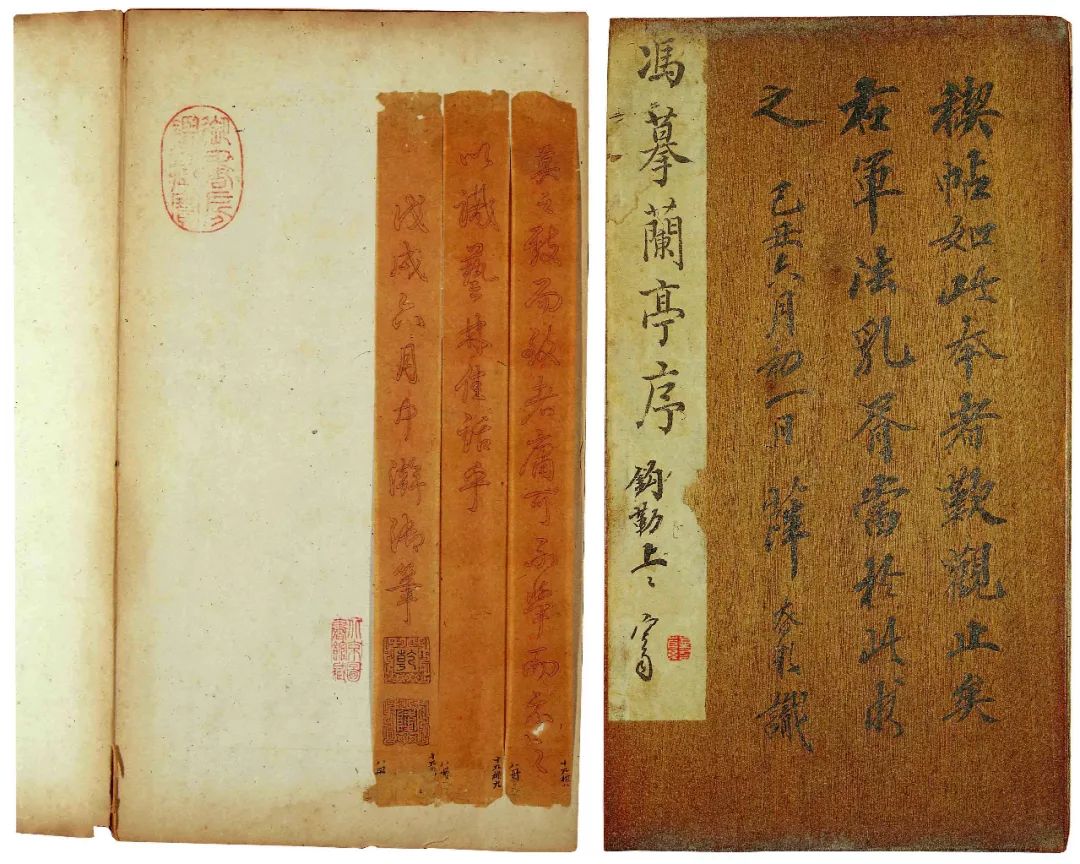 莫之致而致者庸可不舉而志之
以識藝林佳話乎
戊戌六月中澣御筆
乾
隆
馮摹蘭亭序 鉤勒上〻
禊帖如此本者歎觀止矣
右軍法乳胥當於此求
之 己丑六月初一日 識